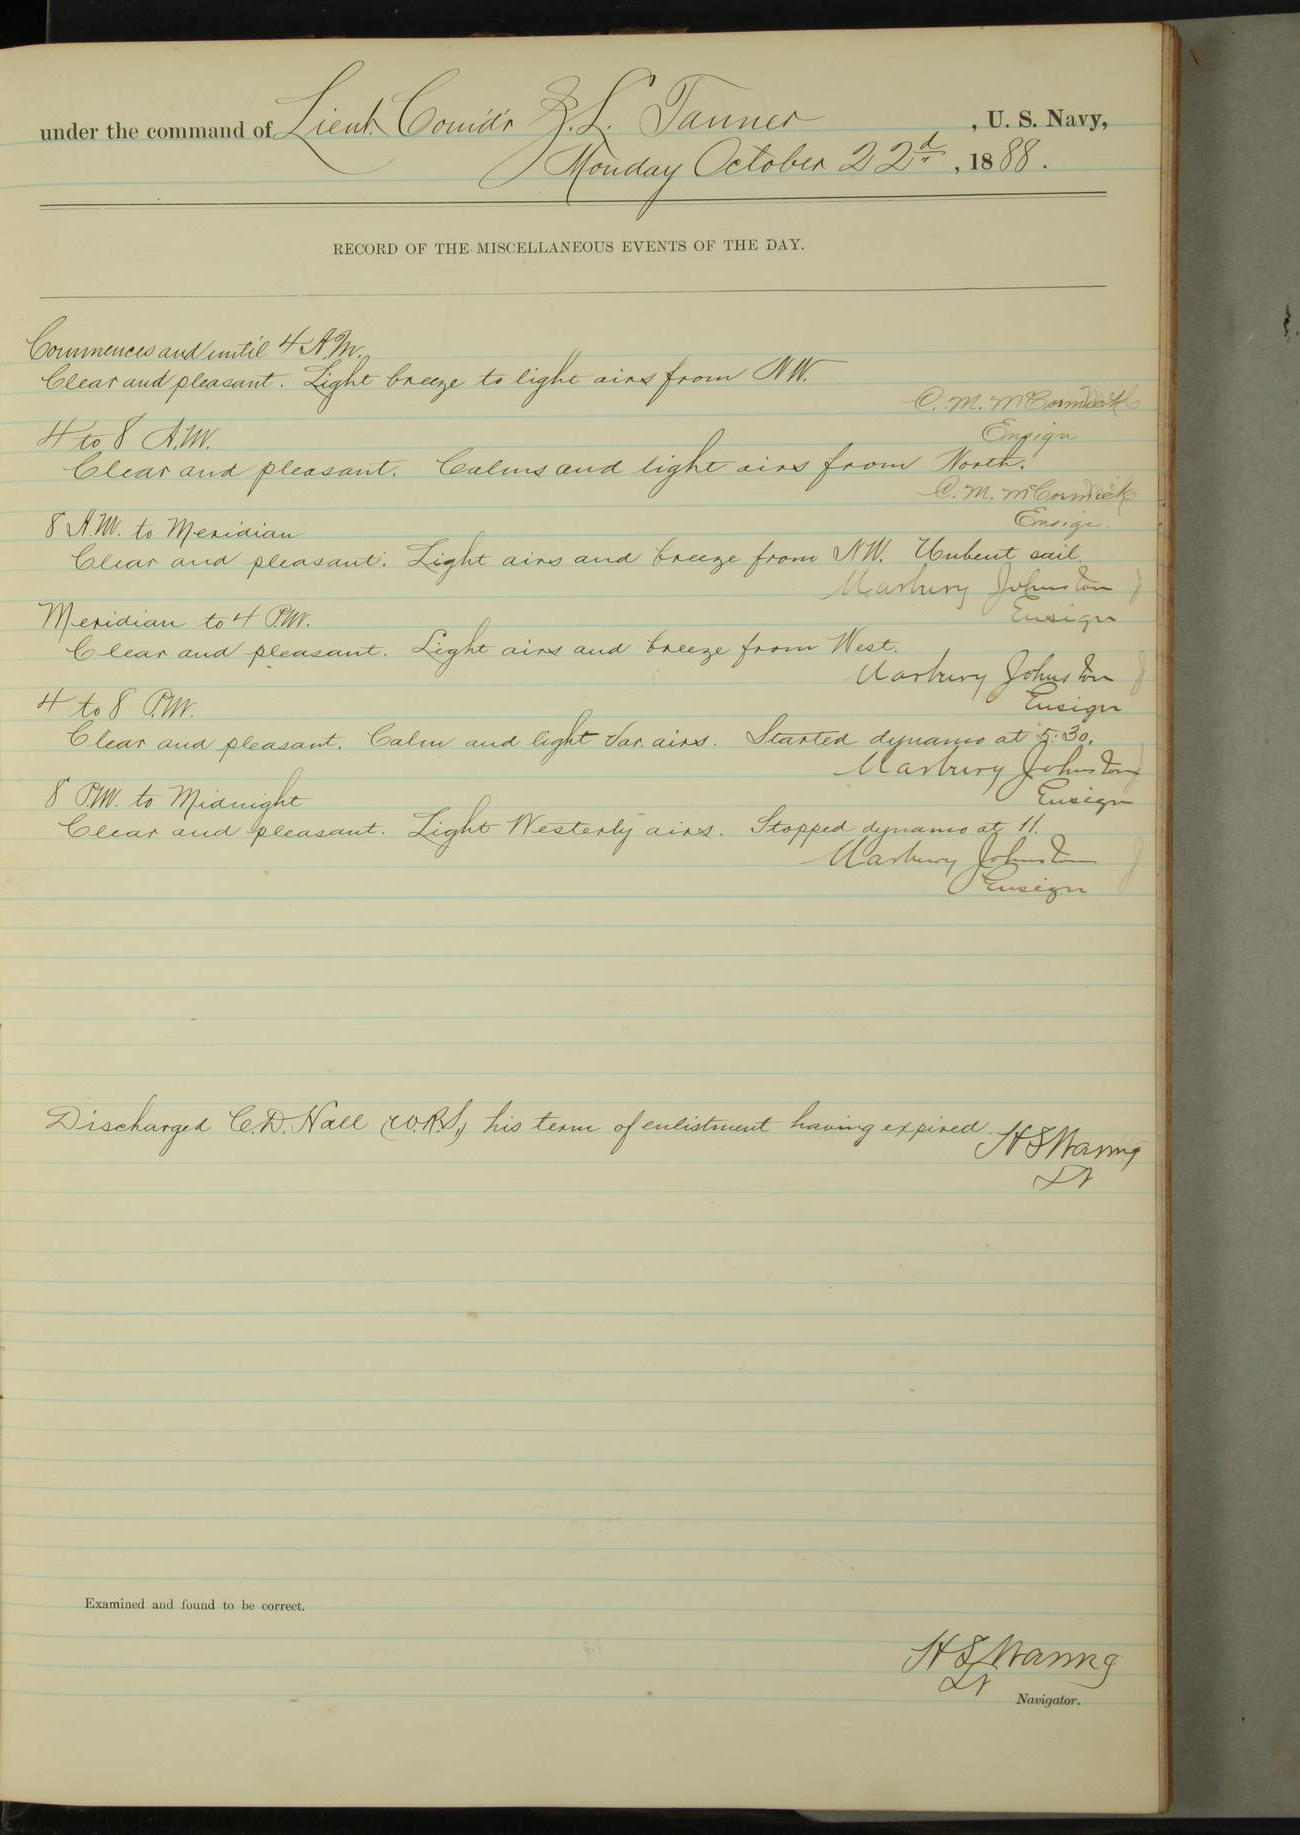 under the command of Lieut. Comd'r Z. L. Tanner, U. S. Navy,
Monday October 22d, 1888.
RECORD OF THE MISCELLANEOUS EVENTS OF THE DAY.
Commences and until 4 A.M.
Clear and pleasant. Light breeze to light airs from NW.
C. M. McCormick
Ensign
4 to 8 A.M.
Clear and pleasant. Calms and light airs from North.
C. M. McCormick
Ensign.
8 A.M. to Meridian
Clear and pleasant. Light airs and breeze from NW. Unbent sail.
Marbury Johnston
Ensign
Meridian to 4 P.M.
Clear and pleasant. Light airs and breeze from West.
Marbury Johnston
Ensign
4 to 8 P.M.
Clear and pleasant. Calm and light Var. airs. Started dynamo at 5:30.
Marbury Johnston
Ensign
8 P.M. to Midnight
Clear and pleasant. Light Westerly airs. Stopped dynamo at 11.
Marbury Johnston
Ensign
Discharged C. D. Nall (W.R.S.,) his term of enlistment having expired.
H S Waring
Lt
Examined and found to be correct.
H S Waring
Lt
Navigator.